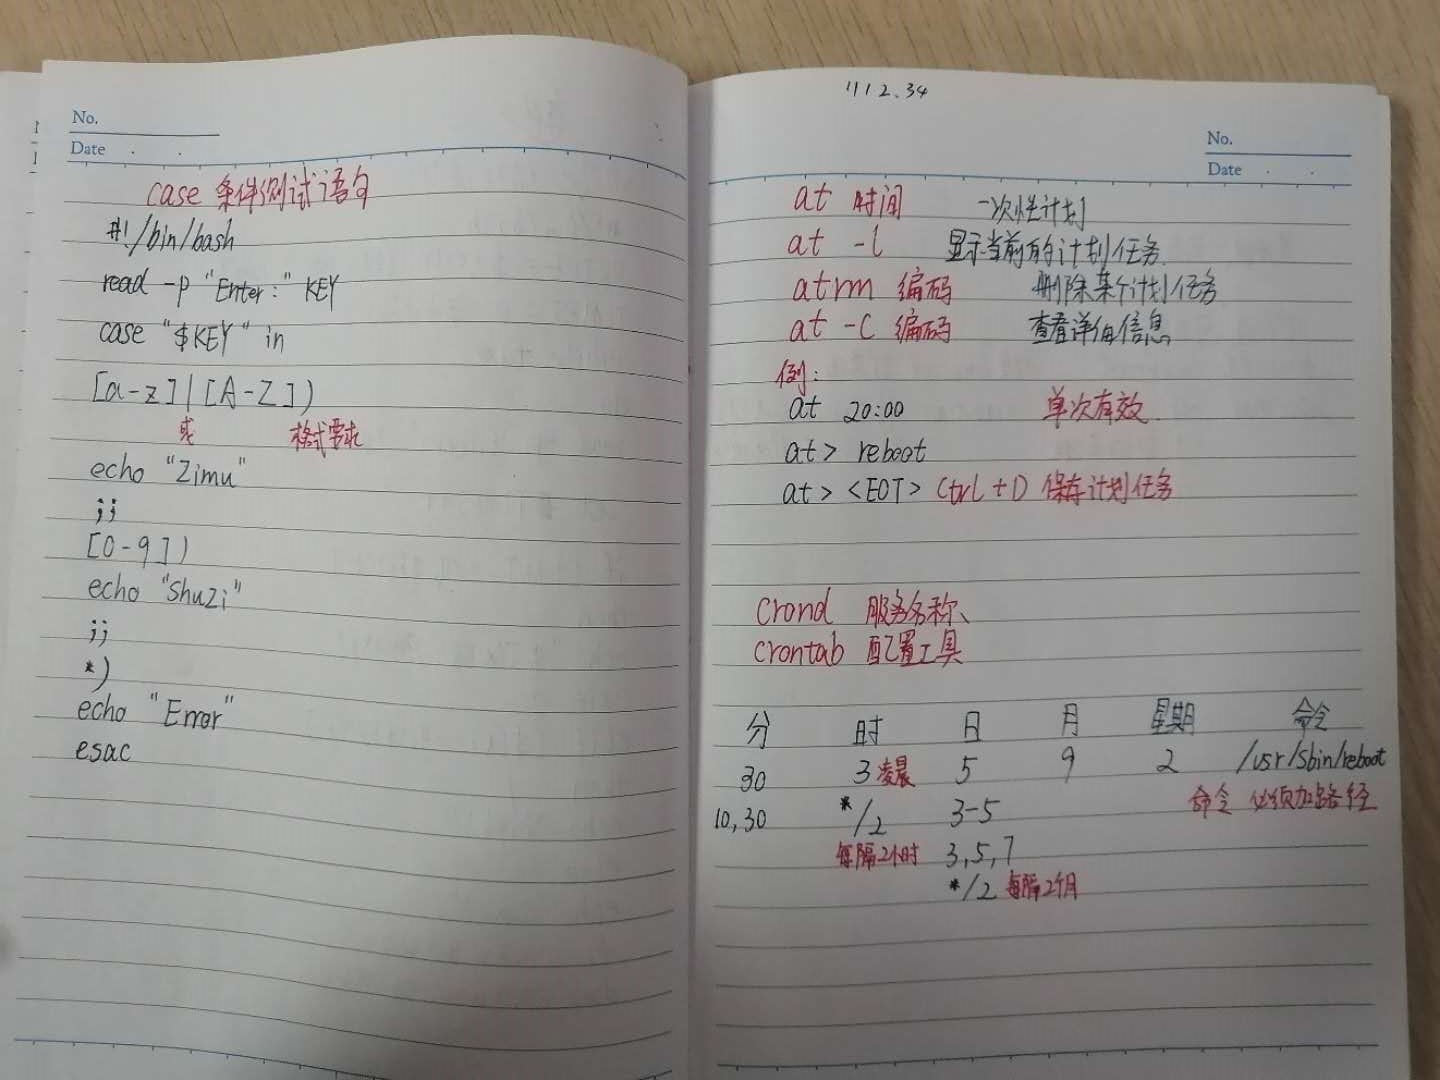 No.
Date
case 条件测试语句
#!/bin/bash
read -p "Enter:" KEY
case "$KEY" in
[a-z]|[A-Z])
或 格式要求
echo "Zimu"
;;
[0-9])
echo "Shuzi"
;;
*)
echo "Error"
esac
1112.34
No.
Date
at 时间 一次性计划
at -l 显示当前的计划任务
atrm 编码 删除某个计划任务
at -c 编码 查看详细信息
例:
at 20:00 单次有效
at> reboot
at> <EOT> Ctrl+D 保存计划任务
crond 服务名称、
crontab 配置工具
分 时 日 月 星期 命令
30 3 凌晨 5 9 2 /usr/sbin/reboot
10,30 */2 3-5 命令 必须加路径
每隔2小时 3,5,7
*/2 每隔2个月